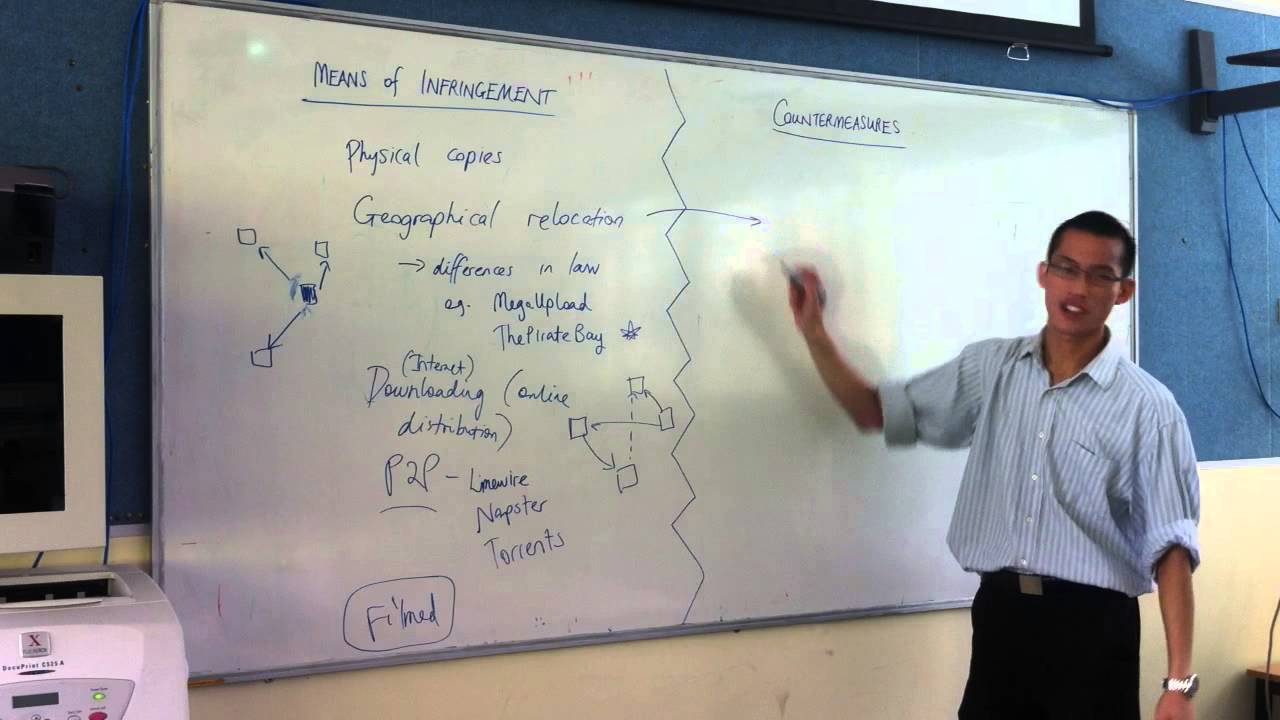 MEANS of INFRINGEMENT
Physical copies
Geographical relocation
→ differences in law
eg. MegaUpload
ThePirateBay
(Internet)
Downloading (online
distribution)
P2P - Limewire
Napster
Torrents
Filmed
COUNTERMEASURES
X
DocuPrint C525 A